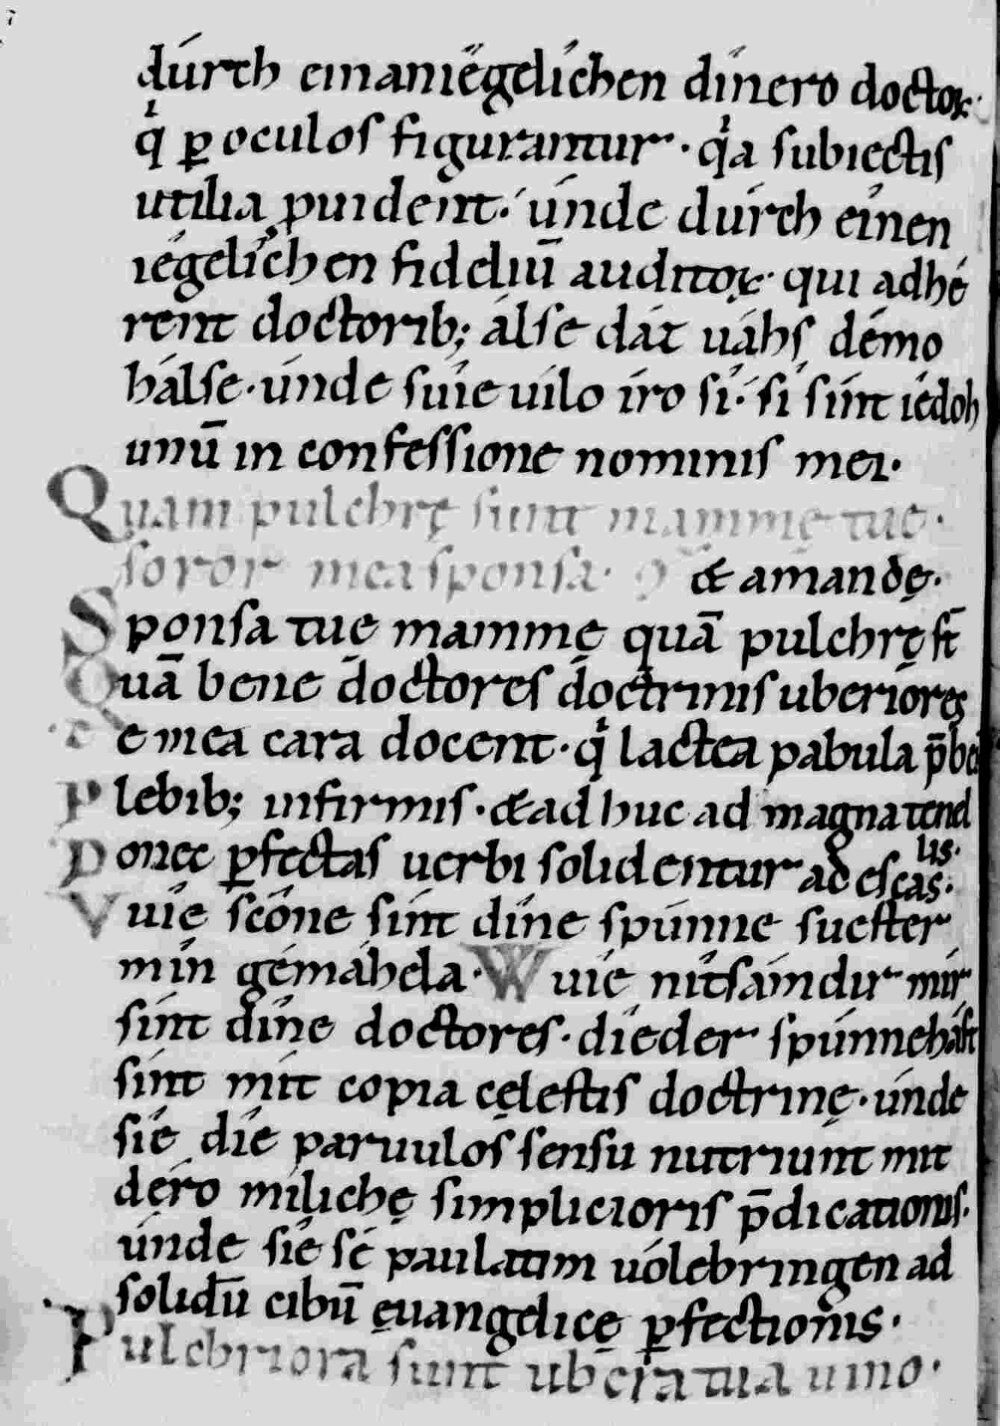 dúrth einaniégelichen dínero doctoꝝ·
qͥ ꝑ oculos figurantur · qͥa subiectis
utilia ꝓuident · únde dúrch eínen
iégelichen fideliū auditoꝝ · qui adhe
rent doctorib; álse dáz uáhs démo
hálse · únde suíe uílo íro sí · sí sínt iédoh
unū in confessione nominis mei ·
Quam pulchrę sunt mammę tuę ·
soror mea sponsa · & amandę ·
Sponsa tue mammę quā pulchrę st̄
Quā bene doctores doctrinis uberiores
Te mea cara docent · qͥ lactea pabula p̄bent
Plebib; infirmis · & ad huc ad magna tend
Donec ꝑfectas uerbi solidentur ad escas · lis ·
Vuíe scône sínt díne spúnne suester
mín gemáhela · Wuíe nítsámdur mír
sínt díne doctores · díeder spúnneháft
sínt mít copia cęlestis doctrinę · únde
síe díe paruulos sensu nutriunt mít
déro míliche simplicioris p̄dicationis ·
únde síe sé paulatim uólebringen ad
solidū cibū ęuangelicę ꝑfectionis ·
Pulchriora sunt ubera tua uino ·